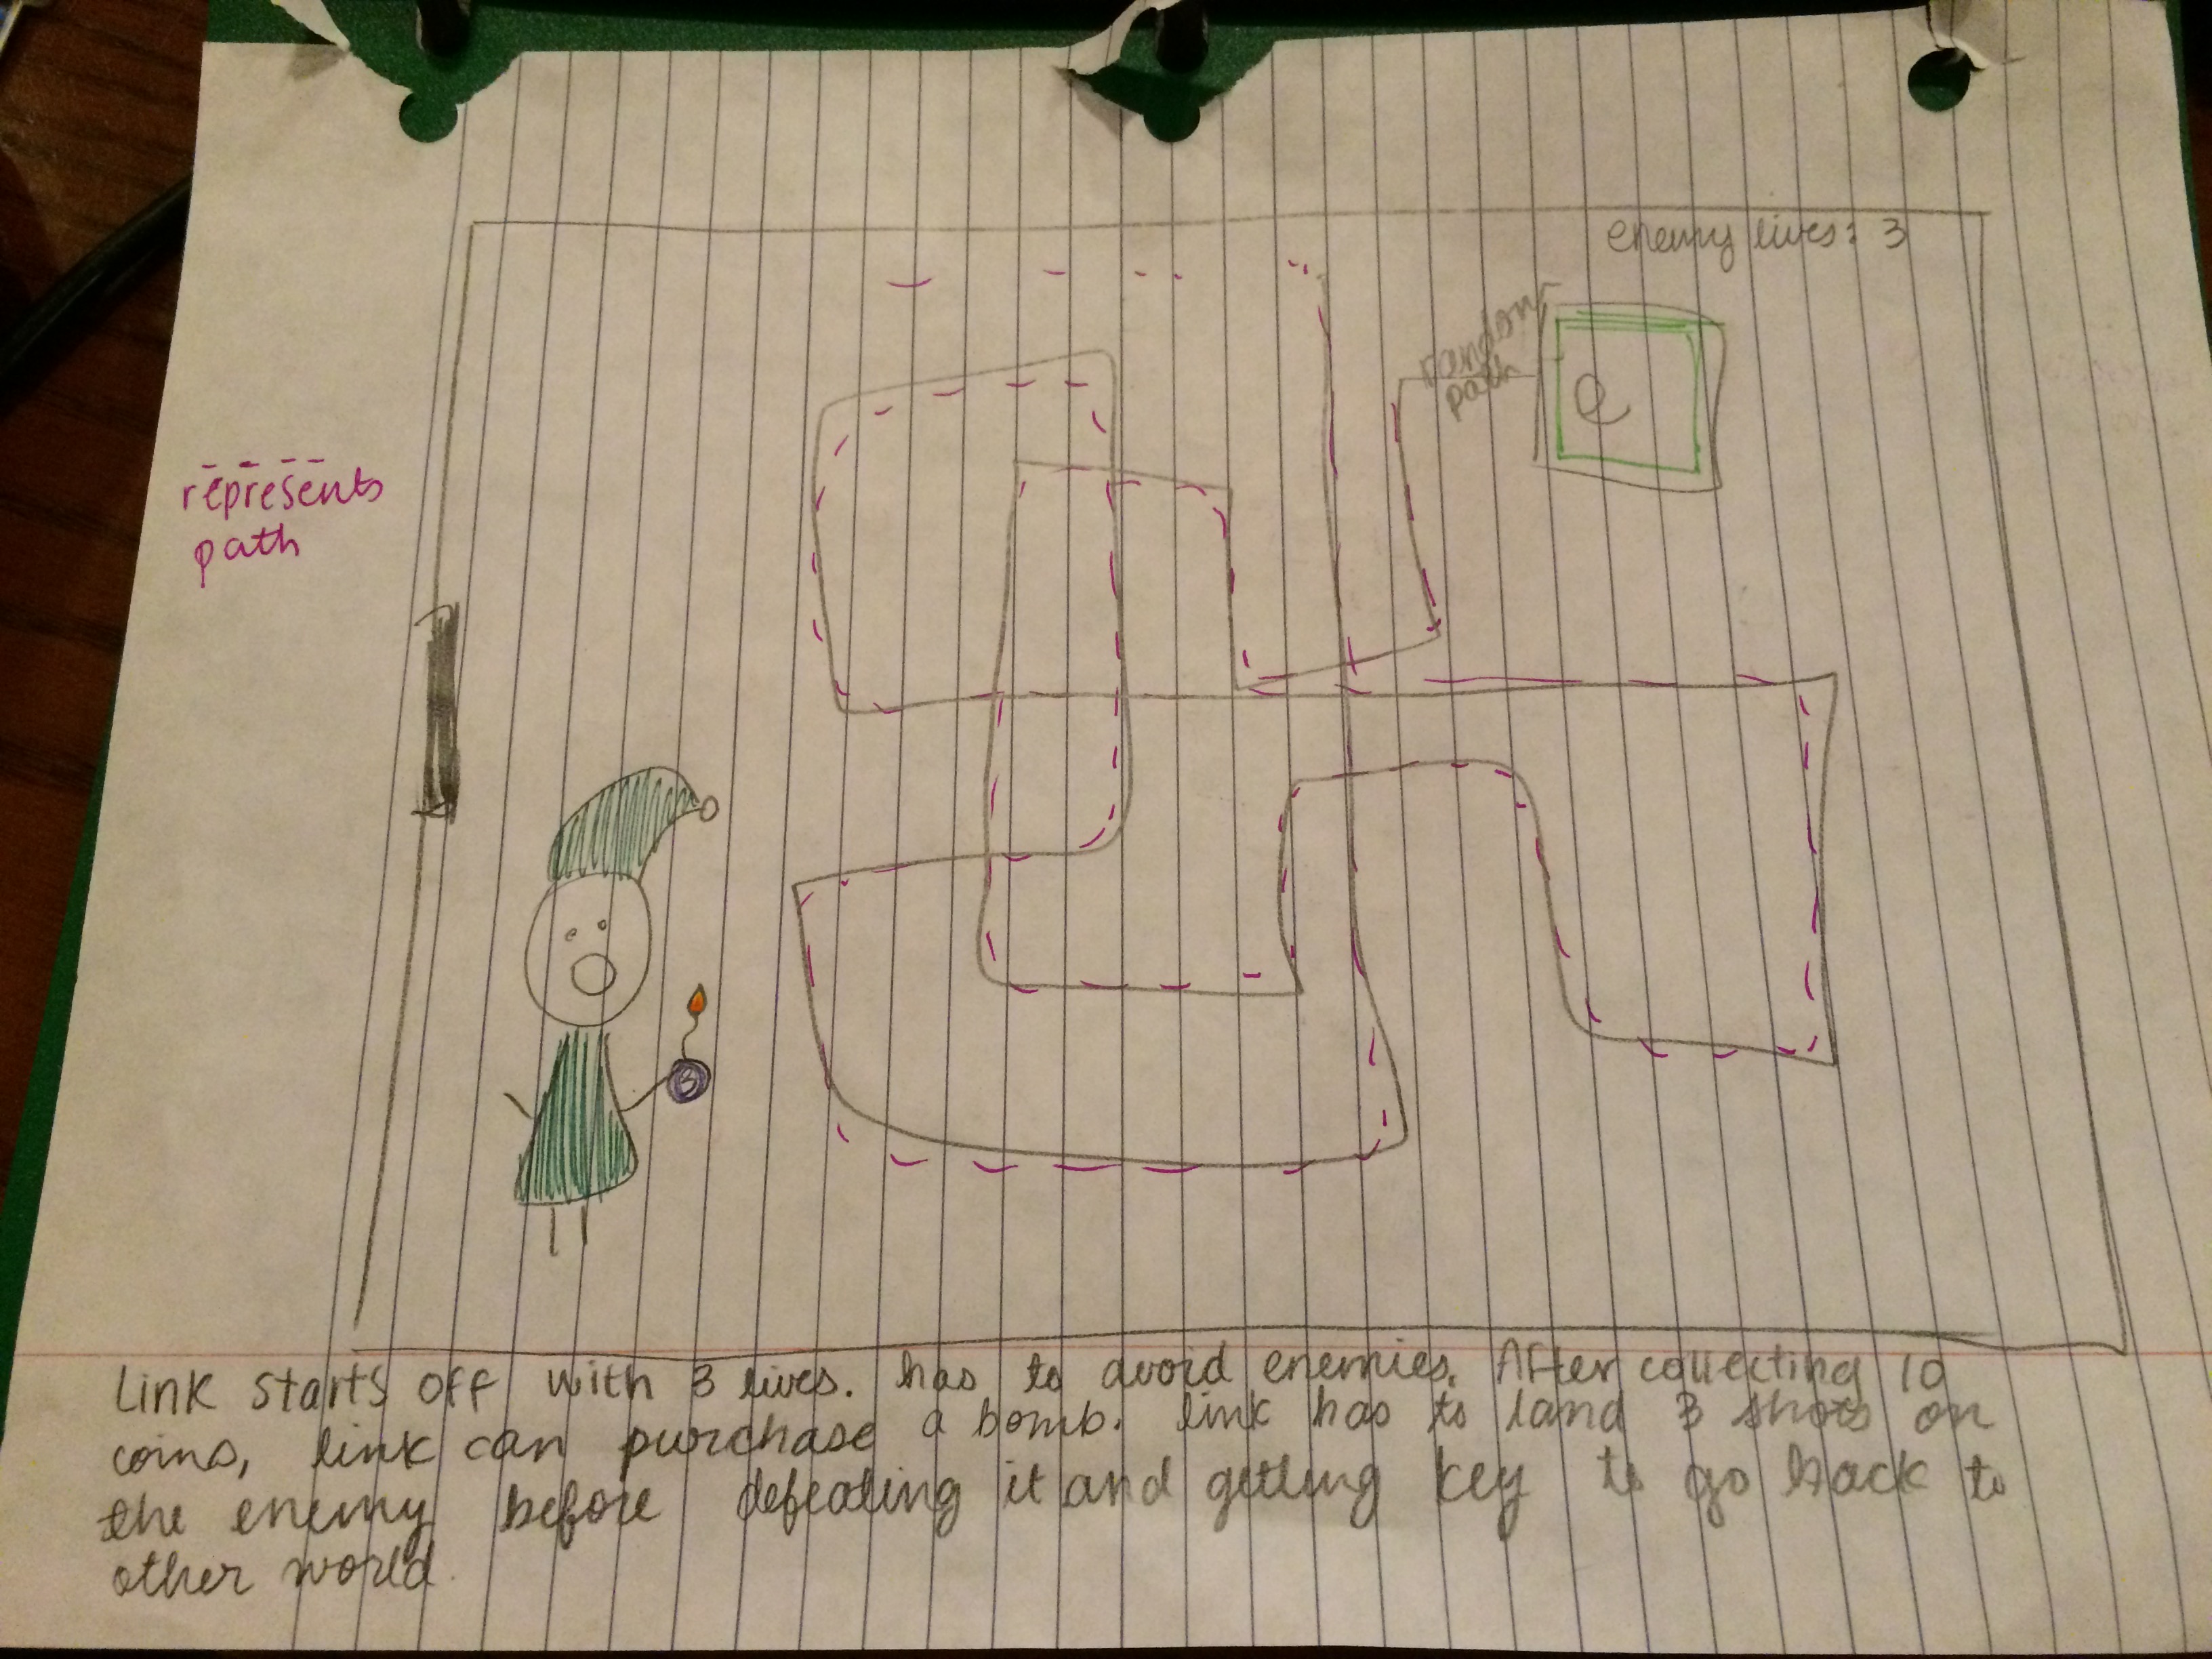 enemy lives: 3
random
path
e
represents
path
B
Link starts off with 3 lives. has to avoid enemies. After collecting 10
coins, link can purchase a bomb. link has to land 3 shots on
the enemy before defeating it and getting key to go back to
other world.